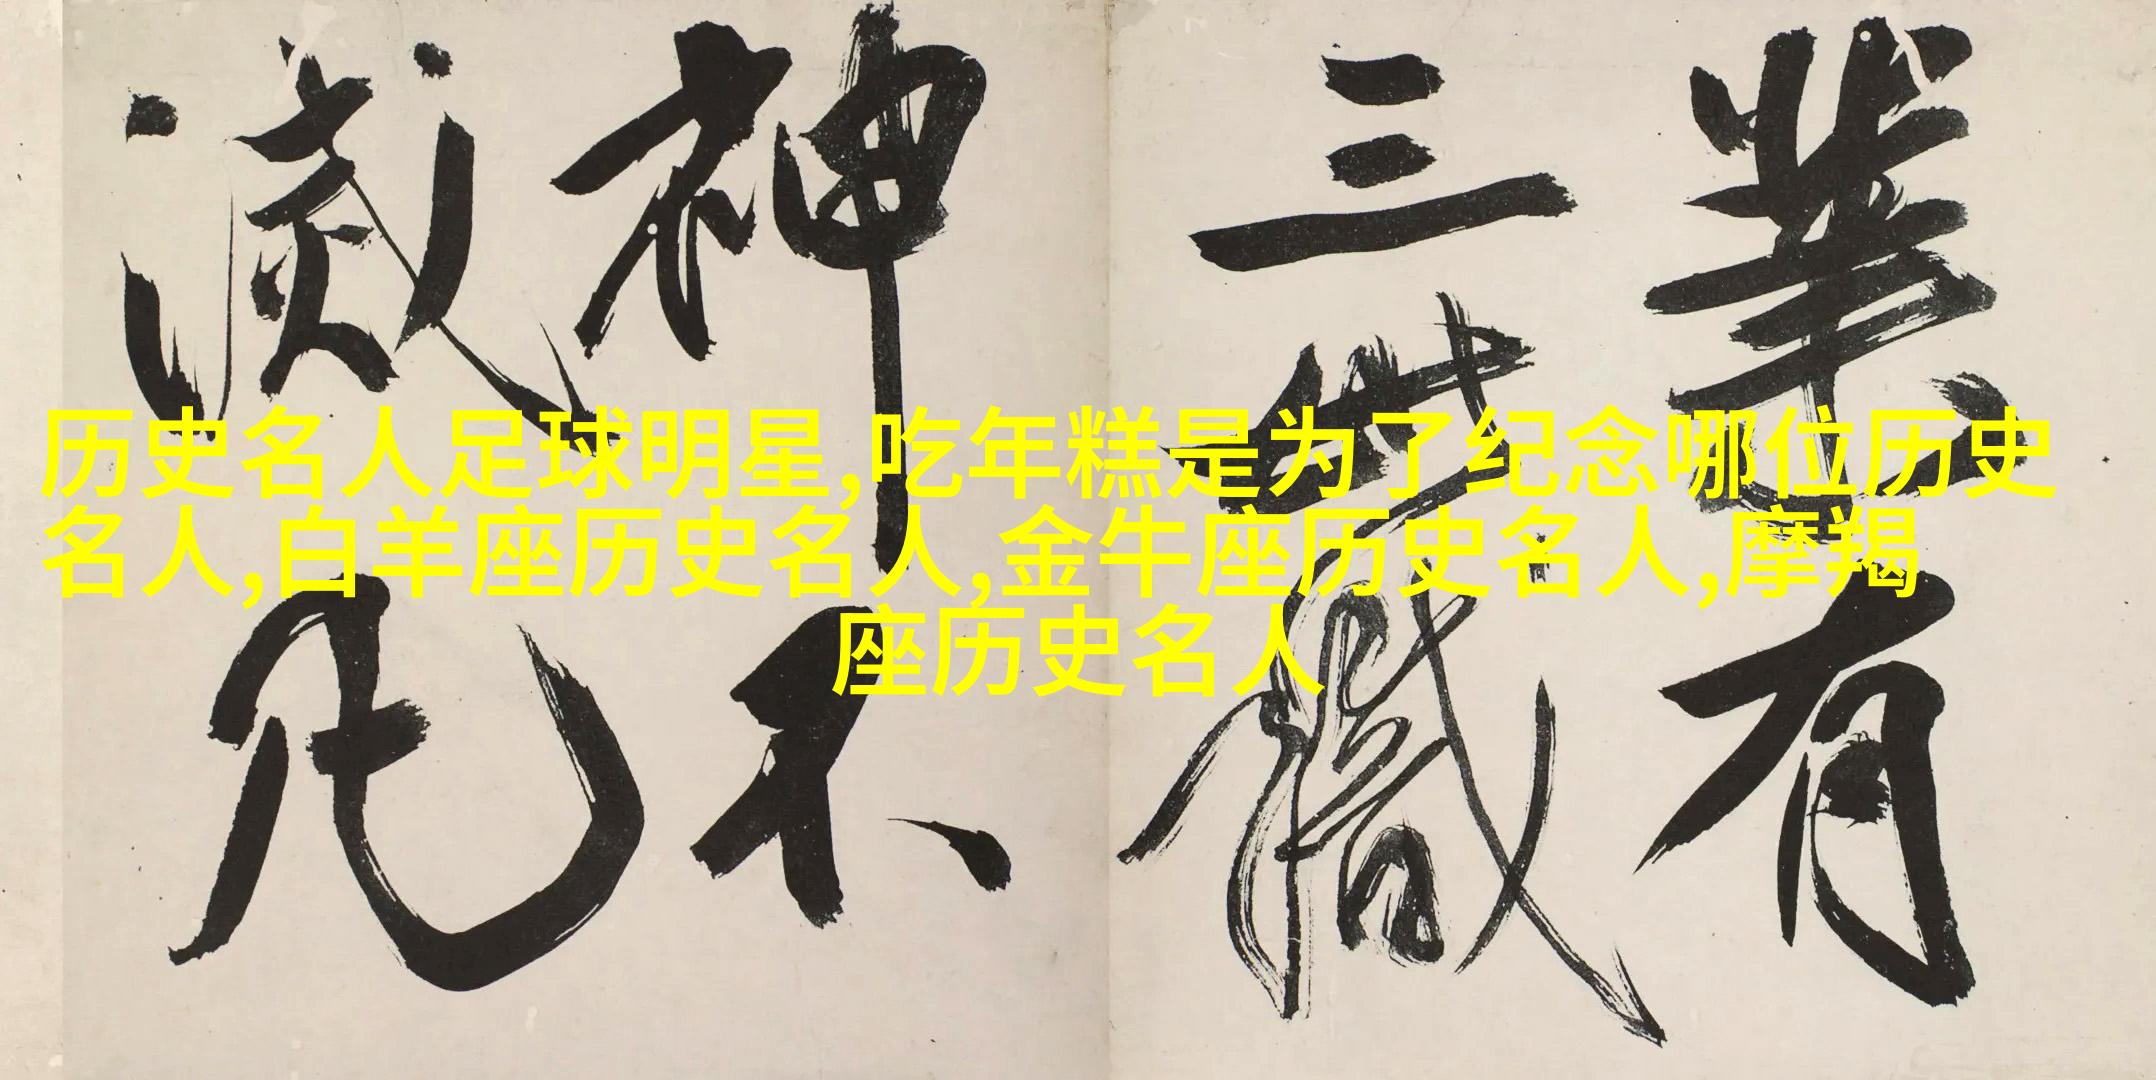 業有
三世職
神不
滅凡
历史名人足球明星,吃年糕是为了纪念哪位历史
名人,白羊座历史名人,金牛座历史名人,摩羯
座历史名人